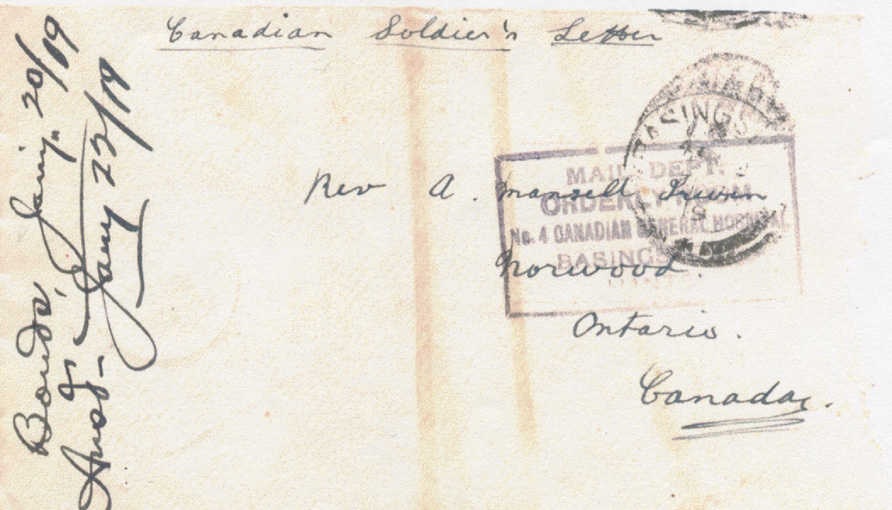 Canadian Soldier's Letter
Rev A. Mansell Irwin
Norwood.
Ontario.
Canada.
MAIL DEPT.
ORDERLY ROOM
No. 4 CANADIAN GENERAL HOSPITAL
BASINGS
BASINGS
Jany. 20/19
Ansd- Jany 23/19